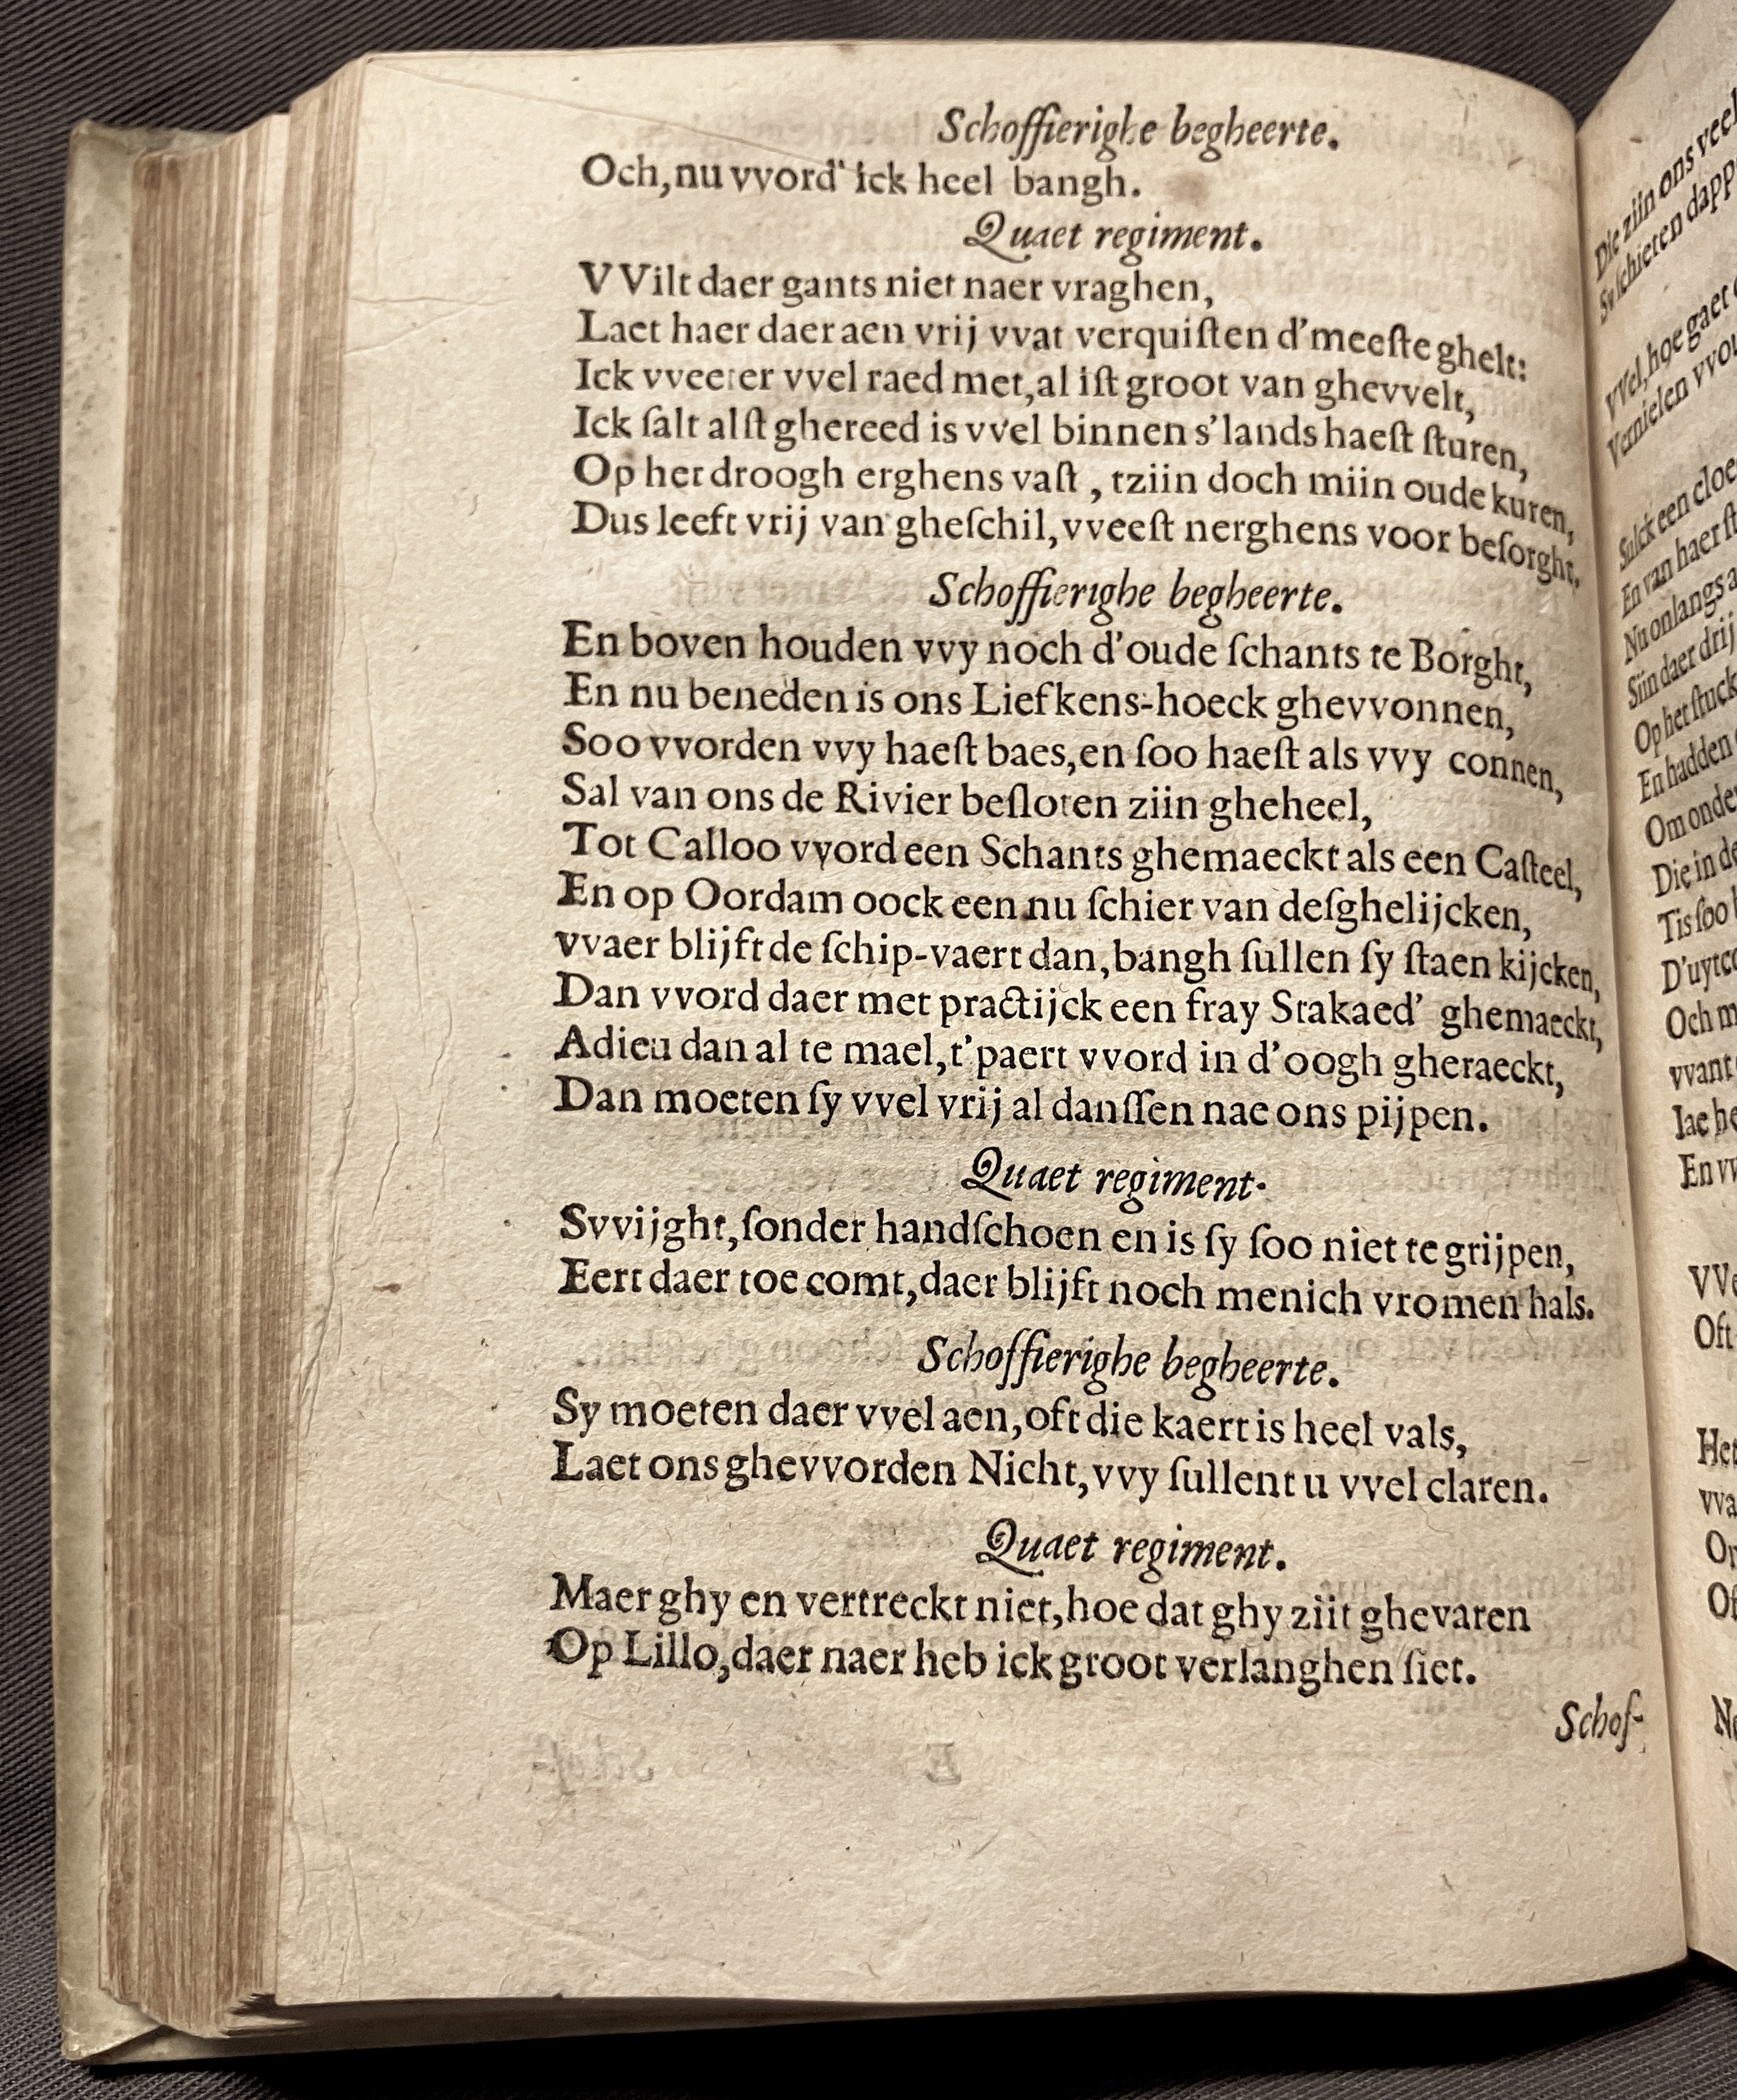 Schoffierighe begheerte.
Och, nu vvord' ick heel bangh.
Quaet regiment.
VVilt daer gants niet naer vraghen,
Laet haer daer aen vrij vvat verquiſten d'meeſte ghelt:
Ick vveeter vvel raed met, al iſt groot van ghevvelt,
Ick ſalt alſt ghereed is vvel binnen s'lands haeſt ſturen,
Op het droogh erghens vaſt, tziin doch miin oude kuren,
Dus leeft vrij van gheſchil, vveeſt nerghens voor beſorght,
Schoffierighe begheerte.
En boven houden vvy noch d'oude ſchants te Borght,
En nu beneden is ons Liefkens-hoeck ghevvonnen,
Soo vvorden vvy haeſt baes, en ſoo haeſt als vvy connen,
Sal van ons de Rivier beſloten ziin gheheel,
Tot Calloo vvord een Schants ghemaeckt als een Caſteel,
En op Oordam oock een nu ſchier van deſghelijcken,
vvaer blijft de ſchip-vaert dan, bangh ſullen ſy ſtaen kijcken,
Dan vvord daer met practijck een fray Stakaed' ghemaeckt,
Adieu dan al te mael, t'paert vvord in d'oogh gheraeckt,
Dan moeten ſy vvel vrij al danſſen nae ons pijpen.
Quaet regiment.
Svvijght, ſonder handſchoen en is ſy ſoo niet te grijpen,
Eert daer toe comt, daer blijft noch menich vromen hals.
Schoffierighe begheerte.
Sy moeten daer vvel aen, oft die kaert is heel vals,
Laet ons ghevvorden Nicht, vvy ſullent u vvel claren.
Quaet regiment.
Maer ghy en vertreckt niet, hoe dat ghy ziit ghevaren
Op Lillo, daer naer heb ick groot verlanghen ſiet.
Schof-
Die ziin ons veel
Sy ſchieten dapp
VVel, hoe gaet
Vernielen vvou
Sulck een cloe
En van haer ſt
Nu onlangs a
Siin daer drij
Op het ſtuck
En hadden
Om onde
Die in de
Tis ſoo
D'uytco
Och m
vvant
Iae he
En vv
VVe
Oft
Het
vva
Or
Of
Ne